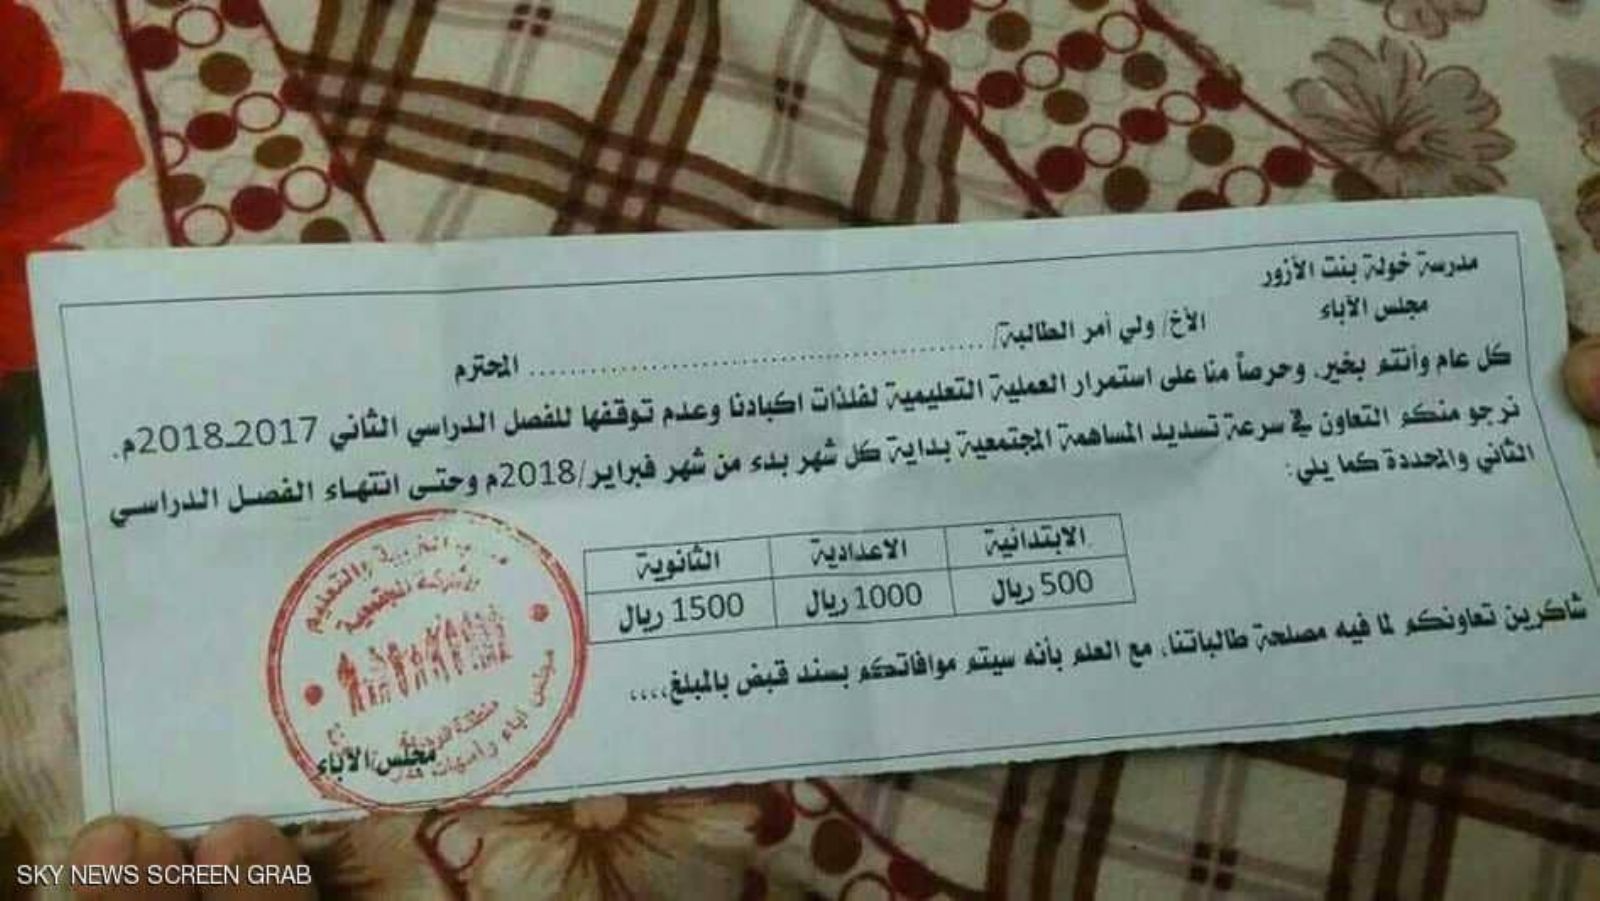 مدرسة خولة بنت الأزور
مجلس الآباء
الأخ/ ولي أمر الطالبة/ ........................................ المحترم
كل عام وأنتم بخير. وحرصاً منا على استمرار العملية التعليمية لفلذات اكبادنا وعدم توقفها للفصل الدراسي الثاني 2017ـ2018م.
نرجو منكم التعاون في سرعة تسديد المساهمة المجتمعية بداية كل شهر بدء من شهر فبراير/2018م وحتى انتهاء الفصل الدراسي
الثاني والمحددة كما يلي:
الابتدائية الاعدادية الثانوية
500 ريال 1000 ريال 1500 ريال
شاكرين تعاونكم لما فيه مصلحة طالباتنا، مع العلم بأنه سيتم موافاتكم بسند قبض بالمبلغ،،،،
التربية والتعليم
المجتمعية
منطقة
مجلس اباء وامهات
مجلس الآباء
SKY NEWS SCREEN GRAB